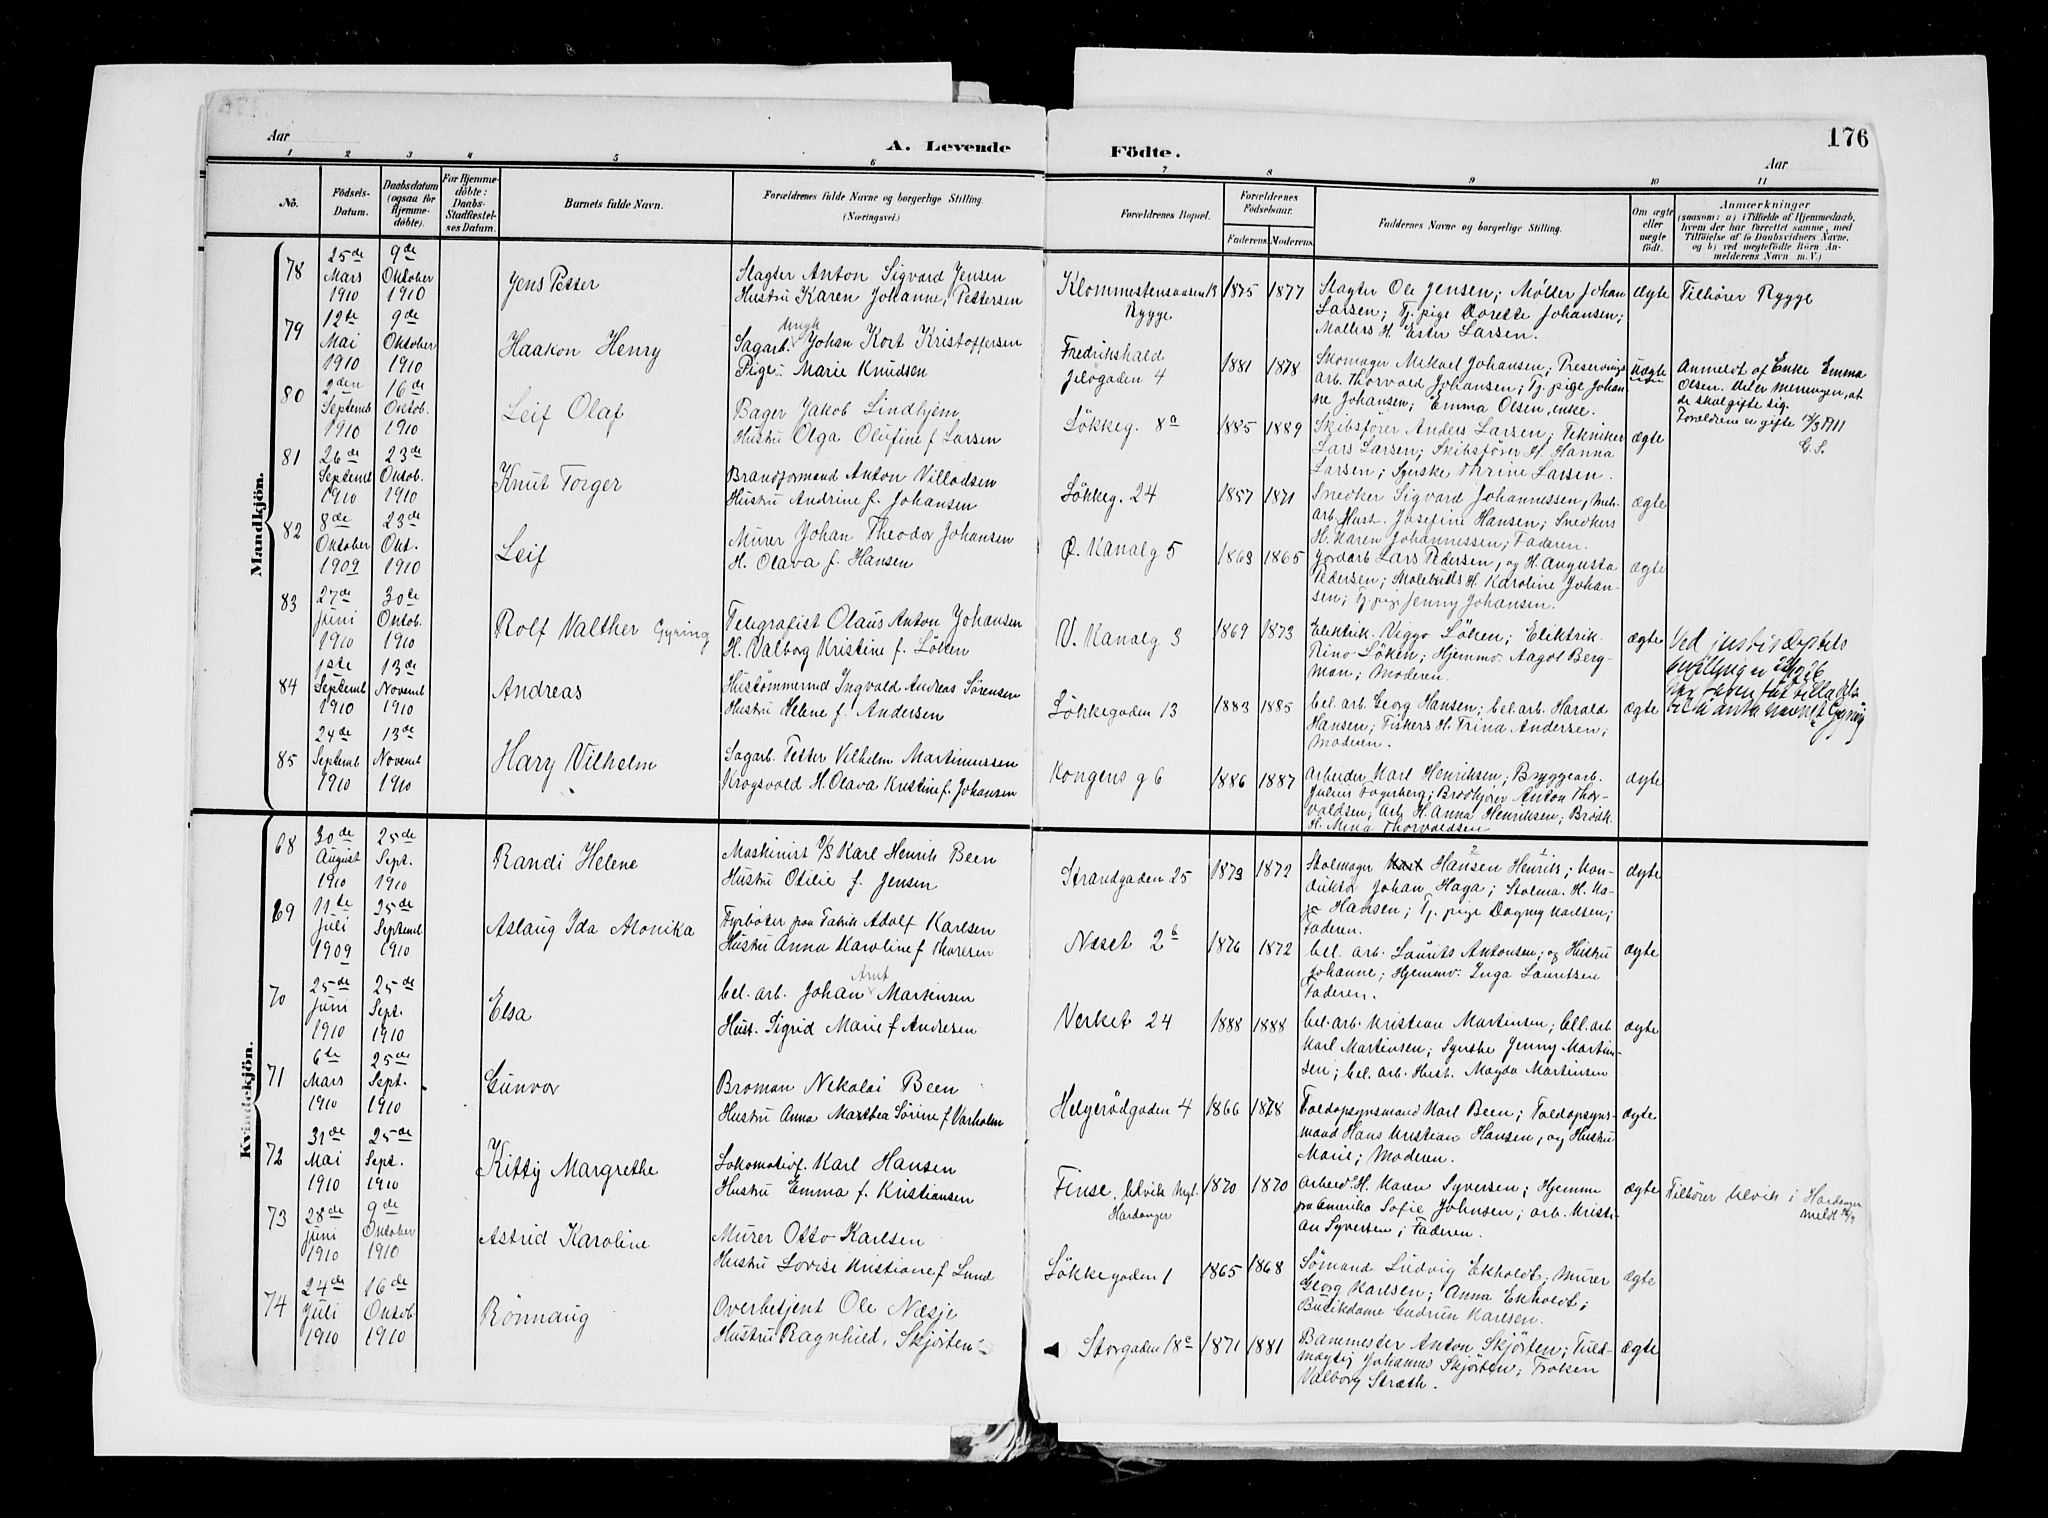 176
Aar
A. Levende
Födte.
Aar
1 2 3 4 5 6 7 8 9 10 11
No.
Födsels-
Datum.
Daabsdatum
(ogsaa for
Hjemme-
döbte).
For Hjemme-
döbte:
Daabs-
Stadfæstel-
ses Datum.
Barnets fulde Navn.
Forældrenes fulde Navne og borgerlige Stilling
(Næringsvei.)
Forældrenes Bopæl.
Forældrenes
Födselsaar.
Faderens. Moderens.
Faddernes Navne og borgerlige Stilling.
Om ægte
eller
uægte
födt.
Anmærkninger
(saasom: a) i Tilfælde af Hjemmedaab,
hvem der har forrettet samme, med
Tilföielse af to Daabsvidners Navne,
og b) ved uægtefödte Börn An-
melderens Navn m. V.)
Mandkjön.
78
25de
Mars
1910
9de
Oktober
1910
Jens Petter
Slagter Anton Sigvard Jensen
Hustru Karen Johanne, Pettersen
Klommestensaasen 19
Rygge
1875 1877
Slagter Ole Jensen; Mølder Johan
Larsen; Tj. pige Dorette Johansen;
Møllers H. Ester Larsen.
ægte
Tilhører Rygge
79
12te
Mai
1910
9de
Oktober
1910
Haakon Henry
Ungk.
Sagarb. Johan Kort Kristoffersen
Pige: Marie Knudsen
Fredrikshald
Jeløgaden 4
1881 1878
Skomager Mikael Johansen; Preservings
arb. Thorvald Johansen; Tj. pige Johan
ne Johansen; Emma Olsen, enke.
uægte
Anmeldt af Enke Emma
Olsen. Det er meningen, at
de skal gifte sig.
Forældrene er gifte 12/3 1911
G. S.
80
2den
Septemb.
1910
16de
Oktob.
1910
Leif Olaf
Bager Jakob Lindhjem
Hustru Olga Olufine f Larsen
Løkkeg. 8a
1885 1889
Skibsfører Anders Larsen; Tekniker
Lars Larsen; Skibsfører H. Hanna
Larsen; Syerske Thrine Larsen.
ægte
81
26de
Septemb
1910
23de
Oktob.
1910
Knut Torger
Brandformand Anton Villadsen
Hustru Andrine f. Johansen
Løkkeg. 24
1857 1871
Snedker Sigvard Johannessen, Mek.
arb. Hust. Josefine Hansen; Snedkers
H. Karen Johannessen; Faderen.
ægte
82
8de
Oktober
1909
23de
Okt.
1910
Leif
Murer Johan Theodor Johansen
H. Olava f. Hansen
Ø. Kanalg 5
1863 1865
Jordarb Lars Pedersen, og H. Augusta
Pedersen; Malebuds H. Karoline Johan-
sen; Tj. pige Jenny Johansen.
ægte
83
27de
Juni
1910
30te
Oktob.
1910
Rolf Valther Gyring
Telegrafist Olaus Anton Johansen
H. Valborg Kristine f. Løken
V. Kanalg 3
1869 1873
Elektrik. Viggo Løken; Eliktrik.
Rino Løken; Hjemmv. Aagot Berg-
man; Moderen.
ægte
Ved justisdeptets
84
1ste
Septemb
1910
13de
Novemb
1910
Andreas
Hustømmermd Ingvald Andreas Sørensen
Hustru Helene f. Andersen
Løkkegaden 13
1883 1885
bel. arb. Georg Hansen; bel. arb. Harald
Hansen; Fiskers H. Trina Andersen;
Moderen.
ægte
85
24de
Septemb
1910
13de
Novemb
1910
Hary Vilhelm
Sagarb. Petter Vilhelm Martinussen
Krogsvold H. Olava Kristine f. Johansen
Kongens g 6
1886 1887
Arbeider Karl Henriksen; Bryggearb.
Julius Fagerberg; Brødkjører Anton Thor-
valdsen; Arb. H. Anna Henriksen; Brødk.
H. Mina Thorvaldsen
ægte
Kvindekjön.
68
30de
August
1910
25de
Sept.
1910
Randi Helene
Maskinist D/S Karl Henrik Been
Hustru Otilie f. Jensen
Strandgaden 25
1873 1872
Stolmager Hansen Henrik; Kon-
duktør Johan Haga; Stolma. H. Ka-
ja Hansen; Tj. pige Dagny Karlsen;
Faderen.
ægte
69
11te
Juli
1909
25de
Septemb
1910
Aslaug Ida Monika
Fyrbøter paa Fabrik Adolf Karlsen
Hustru Anna Karoline f Thoresen
Næset 2b
1876 1872
bel. arb. Laurits Antonsen; og Hustru
Johanne; Hjemmv. Inga Lauritsen
Faderen.
ægte
70
25de
Juni
1910
25de
Sept.
1910
Elsa
Arnt
bel. arb. Johan Martinsen
Hust. Sigrid Marie f Andresen
Verket 24
1888 1888
bel. arb. Kristian Martinsen; bel. arb
Karl Martinsen; Syerske Jenny Martin-
sen; bel. arb. Hust. Magda Martinsen
ægte
71
6te
Mars
1910
25de
Sept.
1910
Gunvor
Broman Nekolai Been
Hustru Anna Marthea Sørine f Varholm
Helgerødgaden 4
1866 1878
Toldopsynsmand Karl Been; Toldopsyns-
mand Hans Kristian Hansen, og Hustru
Marie; Moderen.
ægte
72
31de
Mai
1910
25de
Sept.
1910
Kitty Margrethe
Lokomotivf. Karl Hansen
Hustru Emma f. Kristiansen
Finse, Ulvik
Hardanger
1870 1870
Arbeid H. Karen Syversen; Hjemme
fra Amerika Sofie Johnsen; arb. Kristi-
an Syversen; Faderen.
ægte
Tilhører Ulvik i Hardanger
meldt
73
28de
Juni
1910
9de
Oktober
1910
Astrid Karoline
Murer Otto Karlsen
Hustru Lovise Kristiane f Lund
Løkkegaden 1
1865 1868
Sømand Ludvig Ekholdt; Murer
Georg Karlsen; Anna Ekholdt;
Butikdame Gudrun Karlsen.
ægte
74
24de
Juli
1910
16de
Oktob
1910
Rønnaug
Overbetjent Ole Næsje
Hustru Ragnhild, Skjørten
Storgaden 18c
1871 1881
Banemester Anton Skjørten; Fuld-
mægtig Johannes Skjørten; Frøken
Valborg Stræth.
ægte